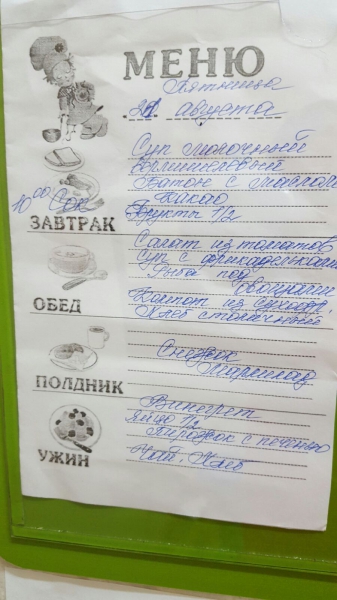 МЕНЮ
Пятница
21 августа
Суп молочный
вермишелевый
Батон с маслом
Какао
10 00 Сок
Фрукты 1/2
ЗАВТРАК
Салат из томатов
Суп с фрикадельками
Рыба под
овощами
Компот из сухофр.
Хлеб столичный
ОБЕД
Снежок
Мармелад
ПОЛДНИК
Винегрет
Яйцо 1/2
Пирожок с печенью
Чай, Хлеб
УЖИН